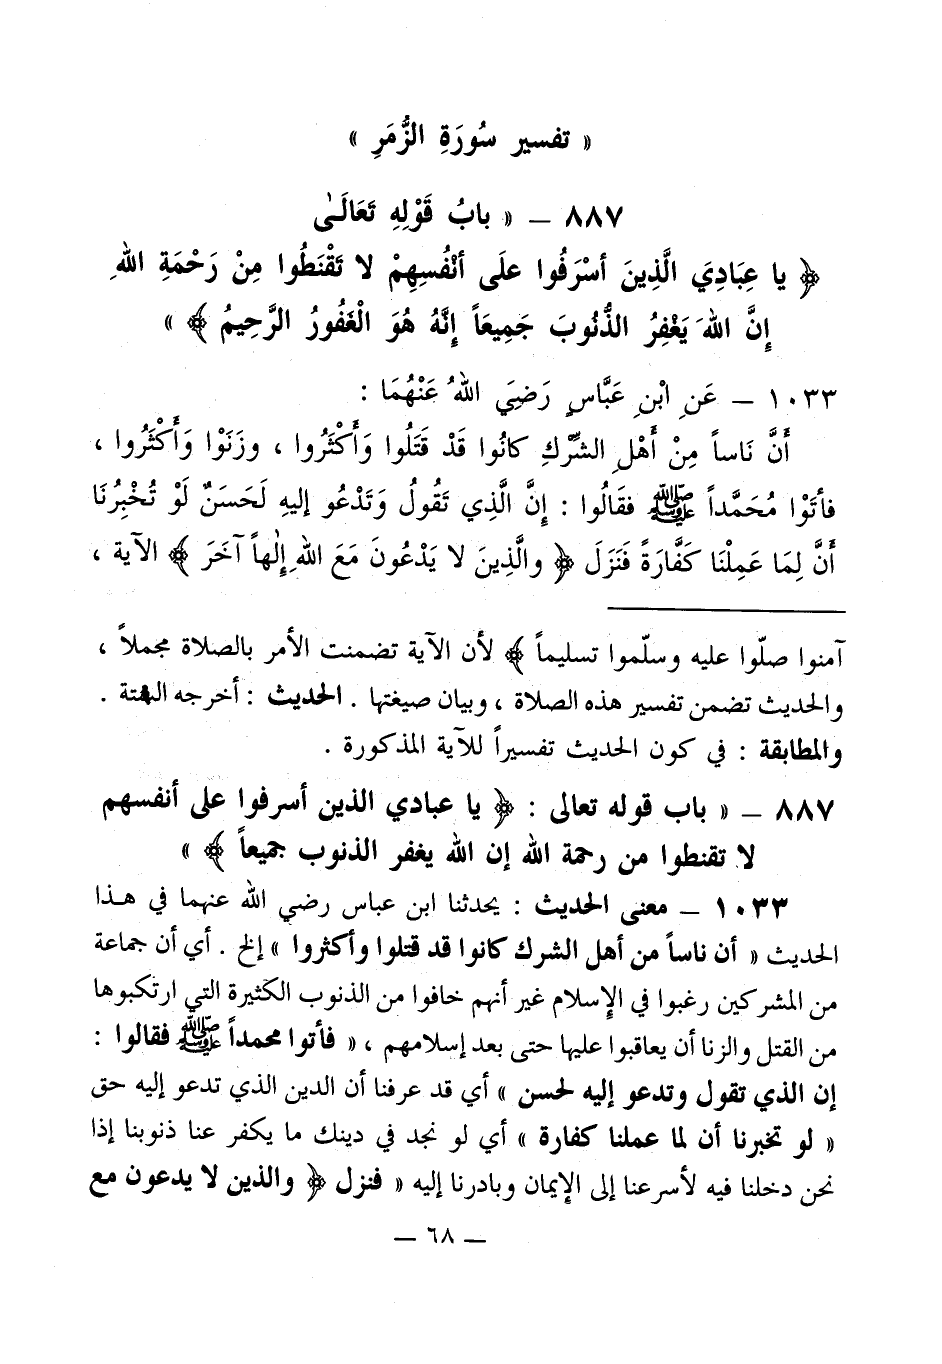 « تفسير سُورَةِ الزُّمَرِ »
٨٨٧ – « بابُ قَوْلِهِ تَعَالَىٰ
﴿ يا عِبَادِيَ الَّذِينَ أسْرَفُوا علَى أنْفُسِهِمْ لا تَقْنَطُوا مِنْ رَحْمَةِ اللهِ
إنَّ اللهَ يَغْفِرُ الذُّنُوبَ جَمِيعَاً إنَّهُ هُوَ الْغَفُورُ الرَّحِيمُ ﴾ »
١٠٣٣ – عَنِ ابْنِ عَبَّاسٍ رَضِيَ اللهُ عَنْهُمَا :
أَنَّ نَاساً مِنْ أَهْلِ الشِّرْكِ كانُوا قَدْ قَتَلُوا وَأَكْثَرُوا ، وزَنَوْا وَأَكْثَرُوا ،
فأتَوْا مُحَمَّداً ﷺ فقَالُوا : إِنَّ الَّذِي تَقُولُ وَتَدْعُو إليهِ لَحَسَنٌ لَوْ تُخْبِرُنَا
أَنَّ لِمَا عَمِلْنَا كَفَّارَةً فَنَزَلَ ﴿ والَّذِينَ لا يَدْعُونَ مَعَ اللهِ إِلٰهاً آخَرَ ﴾ الآية ،
آمنوا صلّوا عليه وسلّموا تسليماً ﴾ لأن الآية تضمنت الأمر بالصلاة مجملاً ،
والحديث تضمن تفسير هذه الصلاة ، وبيان صيغتها . الحديث : أخرجه الستة .
والمطابقة : في كون الحديث تفسيراً للآية المذكورة .
٨٨٧ – « باب قوله تعالى : ﴿ يا عبادي الذين أسرفوا على أنفسهم
لا تقنطوا من رحمة الله إن الله يغفر الذنوب جميعاً ﴾ »
١٠٣٣ – معنى الحديث : يحدثنا ابن عباس رضي الله عنهما في هذا
الحديث « أن ناساً من أهل الشرك كانوا قد قتلوا وأكثروا » إلخ . أي أن جماعة
من المشركين رغبوا في الإسلام غير أنهم خافوا من الذنوب الكثيرة التي ارتكبوها
من القتل والزنا أن يعاقبوا عليها حتى بعد إسلامهم ، « فأتوا محمداً ﷺ فقالوا :
إن الذي تقول وتدعو إليه لحسن » أي قد عرفنا أن الدين الذي تدعو إليه حق
« لو تخبرنا أن لما عملنا كفارة » أي لو نجد في دينك ما يكفر عنا ذنوبنا إذا
نحن دخلنا فيه لأسرعنا إلى الإيمان وبادرنا إليه « فنزل ﴿ والذين لا يدعون مع
– ٦٨ –